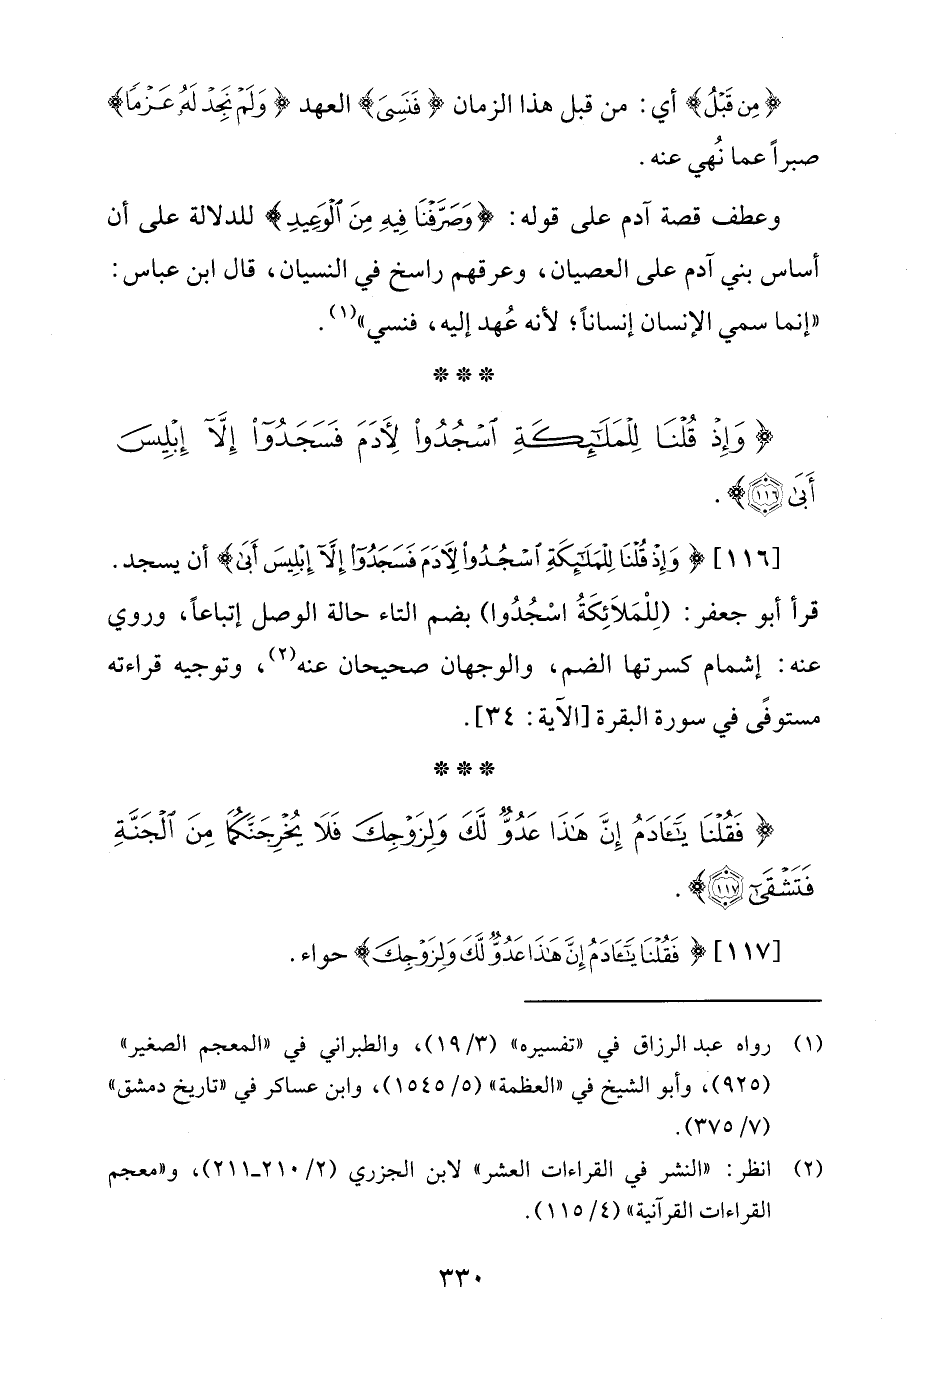 ﴿مِن قَبْلُ﴾ أي: من قبل هذا الزمان ﴿فَنَسِىَ﴾ العهد ﴿وَلَمْ نَجِدْ لَهُۥ عَزْمًا﴾
صبراً عما نُهي عنه.
وعطف قصة آدم على قوله: ﴿وَصَرَّفْنَا فِيهِ مِنَ ٱلْوَعِيدِ﴾ للدلالة على أن
أساس بني آدم على العصيان، وعرقهم راسخ في النسيان، قال ابن عباس:
«إنما سمي الإنسان إنساناً؛ لأنه عُهد إليه، فنسي»(١).
* * *
﴿وَإِذْ قُلْنَا لِلْمَلَٰٓئِكَةِ ٱسْجُدُوا۟ لِـَٔادَمَ فَسَجَدُوٓا۟ إِلَّآ إِبْلِيسَ
أَبَىٰ ١١٦﴾.
[١١٦] ﴿وَإِذْ قُلْنَا لِلْمَلَٰٓئِكَةِ ٱسْجُدُوا۟ لِـَٔادَمَ فَسَجَدُوٓا۟ إِلَّآ إِبْلِيسَ أَبَىٰ﴾ أن يسجد.
قرأ أبو جعفر: (لِلْمَلاَئِكَةُ اسْجُدُوا) بضم التاء حالة الوصل إتباعاً، وروي
عنه: إشمام كسرتها الضم، والوجهان صحيحان عنه(٢)، وتوجيه قراءته
مستوفًى في سورة البقرة [الآية: ٣٤].
* * *
﴿فَقُلْنَا يَٰٓـَٔادَمُ إِنَّ هَٰذَا عَدُوٌّ لَّكَ وَلِزَوْجِكَ فَلَا يُخْرِجَنَّكُمَا مِنَ ٱلْجَنَّةِ
فَتَشْقَىٰٓ ١١٧﴾.
[١١٧] ﴿فَقُلْنَا يَٰٓـَٔادَمُ إِنَّ هَٰذَا عَدُوٌّ لَّكَ وَلِزَوْجِكَ﴾ حواء.
(١) رواه عبد الرزاق في «تفسيره» (٣/ ١٩)، والطبراني في «المعجم الصغير»
(٩٢٥)، وأبو الشيخ في «العظمة» (٥/ ١٥٤٥)، وابن عساكر في «تاريخ دمشق»
(٧/ ٣٧٥).
(٢) انظر: «النشر في القراءات العشر» لابن الجزري (٢/ ٢١٠-٢١١)، و«معجم
القراءات القرآنية» (٤/ ١١٥).
٣٣٠